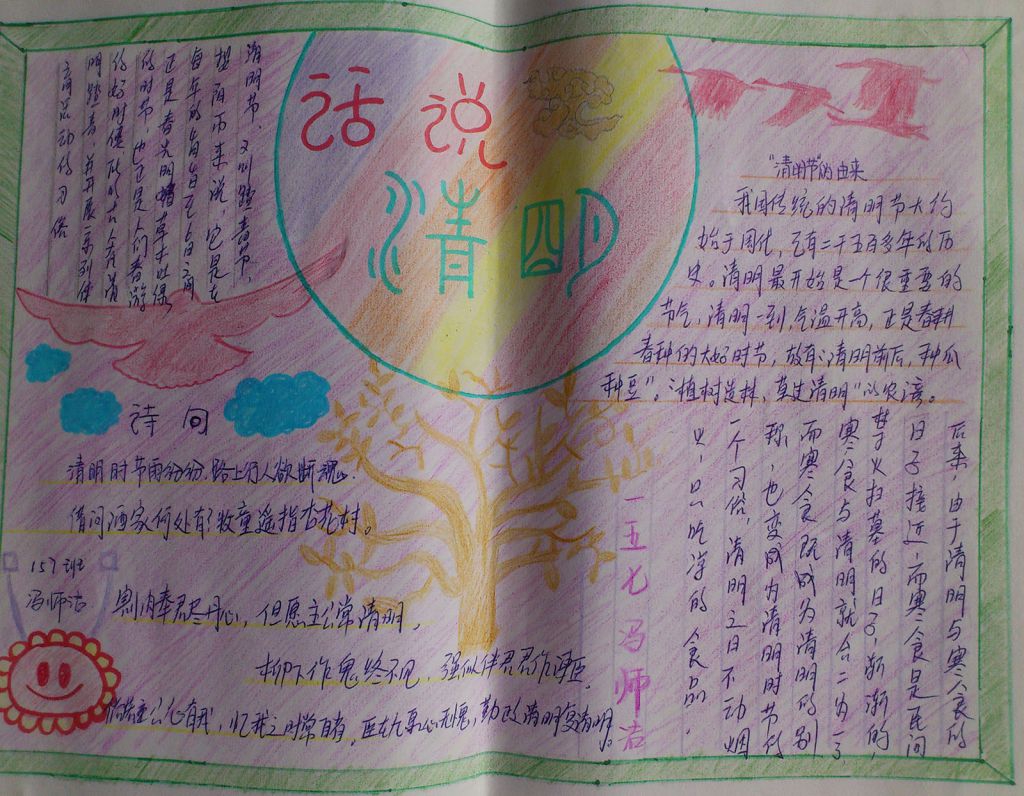 话说
清明
清明节，又叫踏青节，
按阳历来说，它是在
每年的4月4日至6日之间
正是春光明媚草木吐绿
的时节，也正是人们春游
的好时候，所以古人有清
明踏青，并开展一系列体
育活动的习俗
"清明节"的由来
我国传统的清明节大约
始于周代，已有二千五百多年的历
史。清明最开始是一个很重要的
节气，清明一到，气温升高，正是春耕
春种的大好时节，故有"清明前后，种瓜
种豆"。"植树造林，莫过清明"的农谚。
后来，由于清明与寒食的
日子接近，而寒食是民间
禁火扫墓的日子，渐渐的，
寒食与清明就合二为一了，
而寒食既成为清明的别
称，也变成为清明时节的
一个习俗，清明之日不动烟
火，只吃凉的食品。
诗词
清明时节雨纷纷，路上行人欲断魂。
借问酒家何处有？牧童遥指杏花村。
157班
冯师洁
割肉奉君尽丹心，但愿主公常清明，
柳下作鬼终不见，强似伴君作谏臣。
倘若主公心有我，忆我之时常自省，臣在九泉心无愧，勤政清明复清明。
一五七 冯师洁